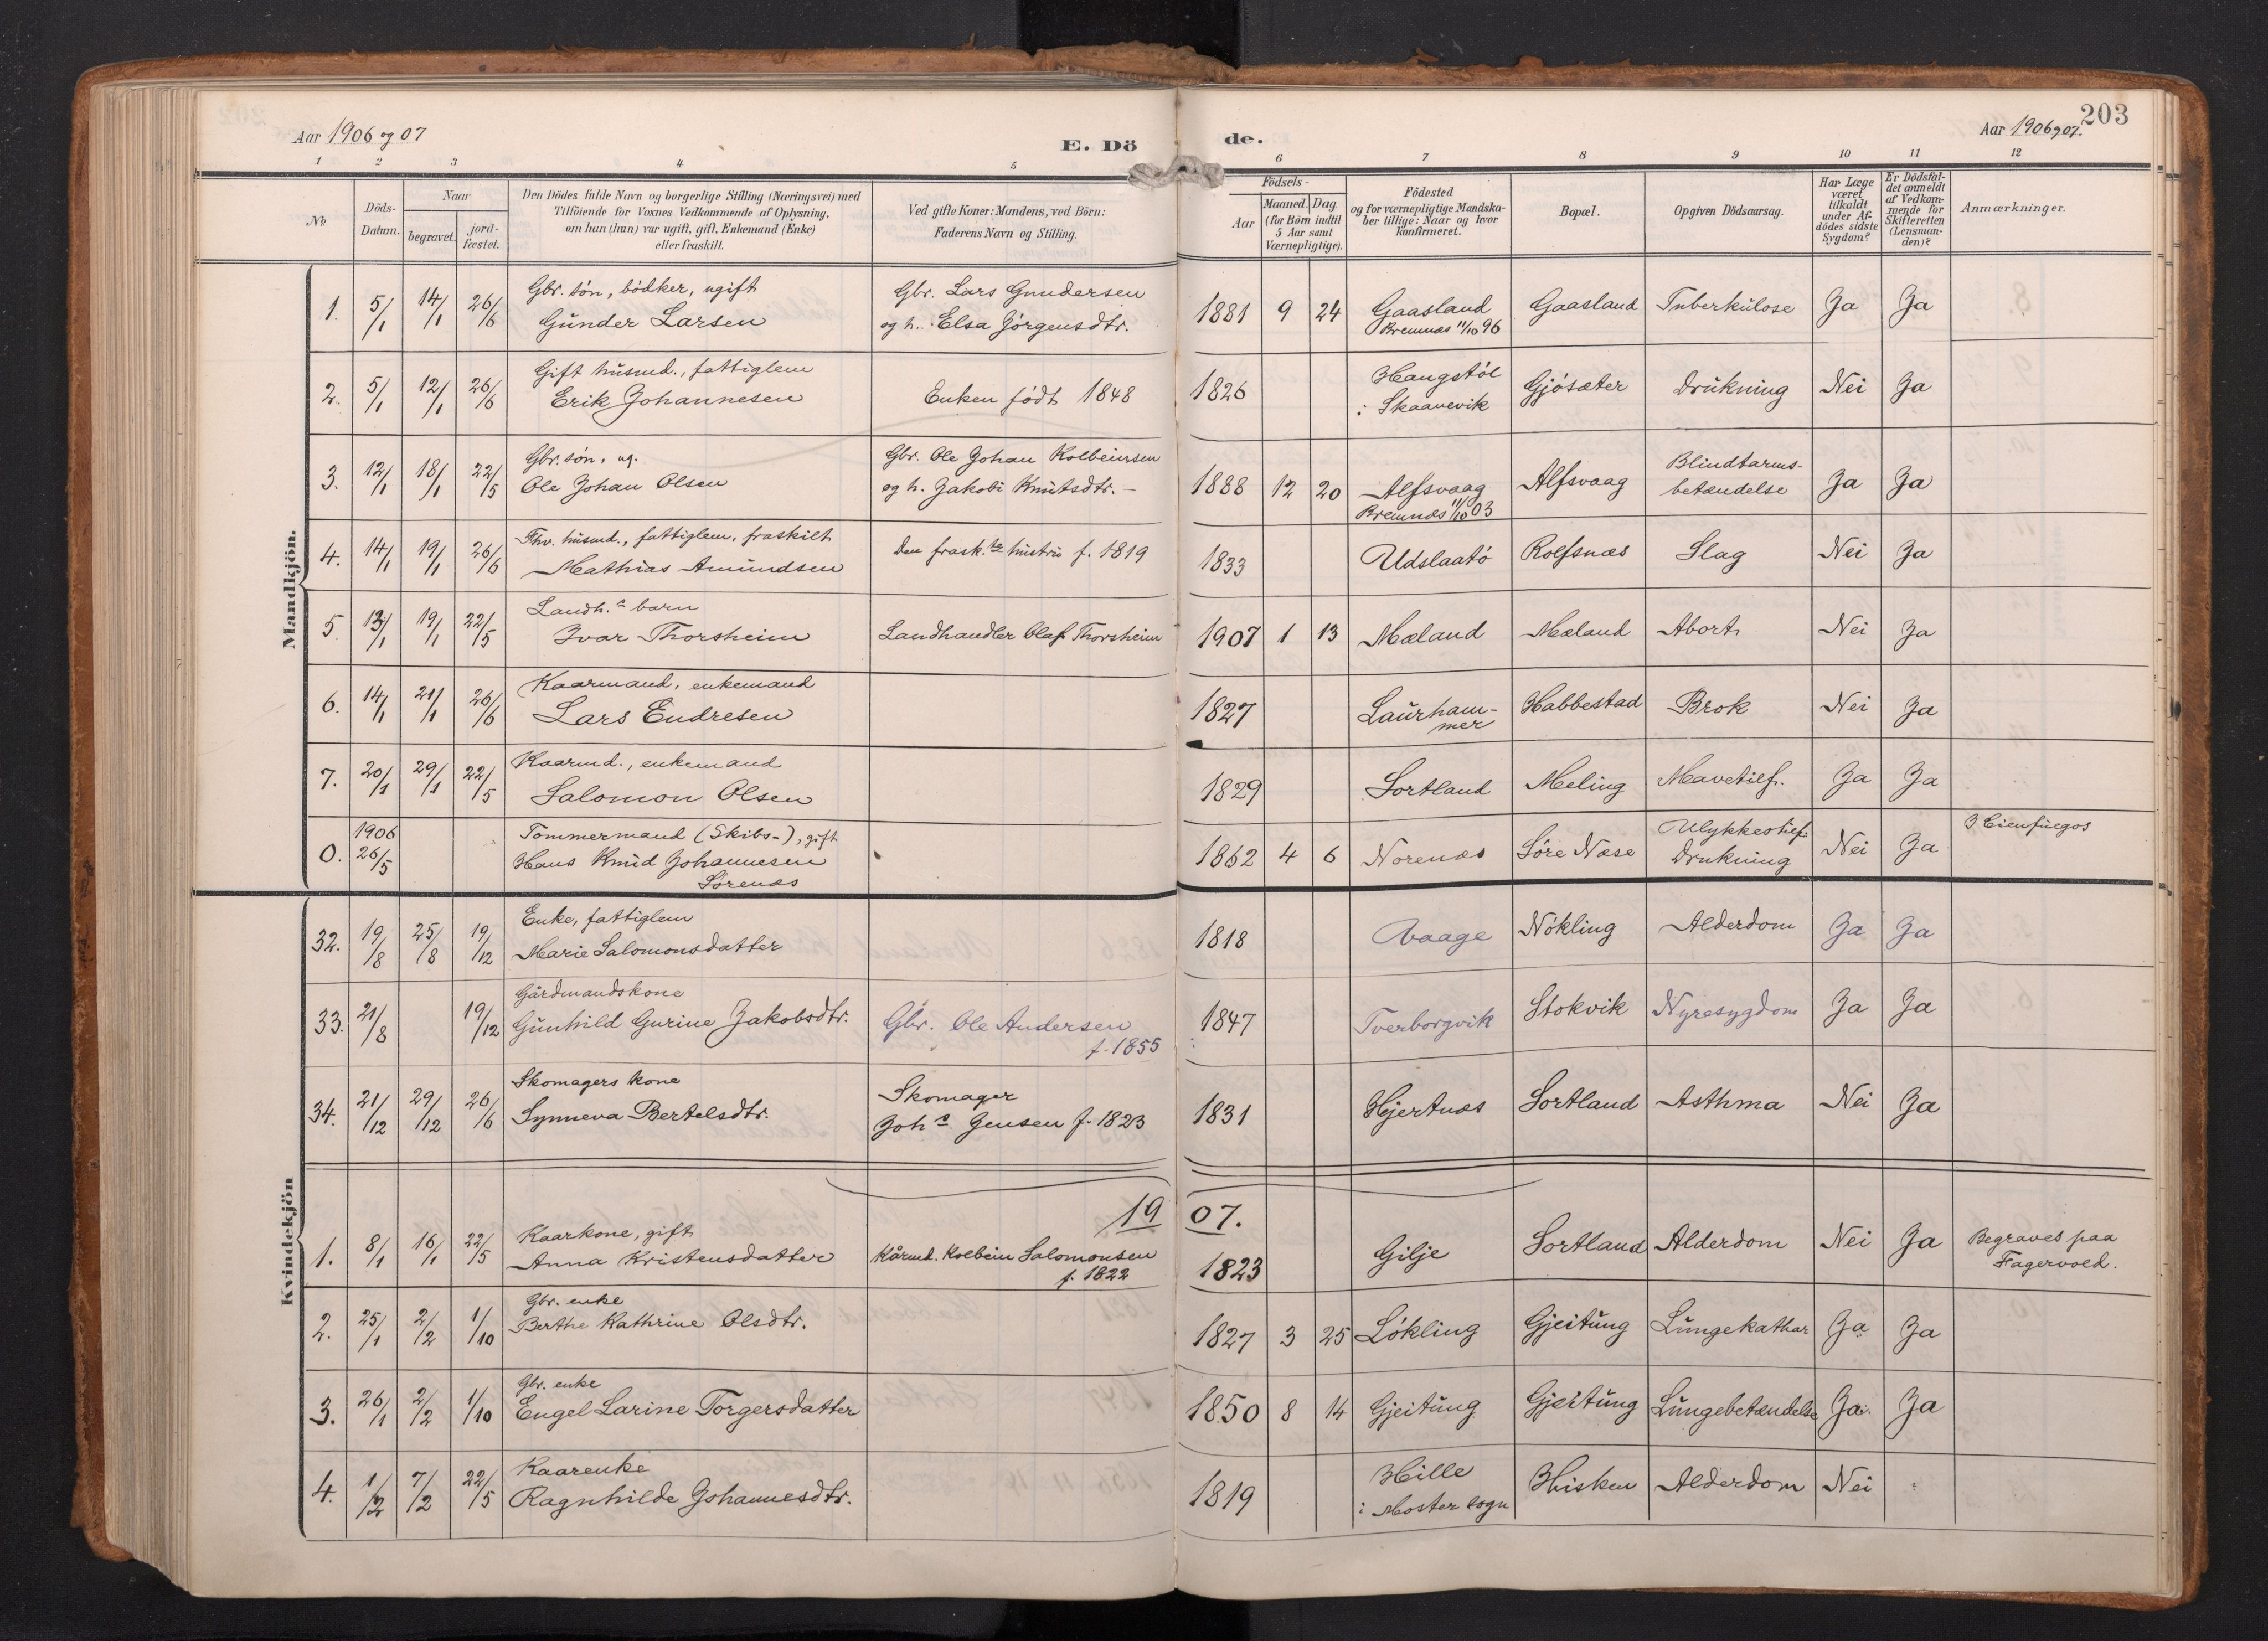 203
Aar 1906 og 07
E. Dö
de.
Aar 1906 og 07.
1 2 3 4 5 6 7 8 9 10 11 12
№
Döds-
Datum.
Naar
begravet.
jord-
fæstet.
Den Dödes fulde Navn og borgerlige Stilling (Næringsvei) med
Tilföiende for Voxnes Vedkommende af Oplysning,
om han (hun) var ugift, gift, Enkemand (Enke)
eller fraskilt.
Ved gifte Koner: Mandens, ved Börn:
Faderens Navn og Stilling.
Födsels-
Aar
Maaned. Dag.
(for Börn indtil
5 Aar samt
Værnepligtige).
Födested
og for værnepligtige Mandska-
ber tillige: Naar og hvor
Konfirmeret.
Bopæl.
Opgiven Dödsaarsag.
Har Læge
været
tilkaldt
under Af-
dödes sidste
Sygdom?
Er Dödsfal-
det anmeldt
af Vedkom-
mende for
Skifteretten
(Lensman-
den)?
Anmærkninger.
Mandkjön.
1. 5/1 14/1 26/6 Gbr. søn, bødker, ugift
Gunder Larsen
Gbr. Lars Gundersen
og h. Elsa Jørgensdtr.
1881 9 24 Gaasland
Bremnæs 11/10 96
Gaasland Tuberkulose Ja Ja
2. 5/1 12/1 26/6 Gift husmd., fattiglem
Erik Johannesen
Enken født 1848
1826 Haugstøl
i Skaanevik
Gjøsæter Drukning Nei Ja
3. 12/1 18/1 22/5 Gbr. søn, ug.
Ole Johan Olsen
Gbr. Ole Johan Kolbeinsen
og h. Jakobi Knutsdtr. –
1888 12 20 Alfsvaag
Bremnæs 11/10 03
Alfsvaag Blindtarms-
betændelse Ja Ja
4. 14/1 19/1 26/6 Fhv. husmd., fattiglem, fraskilt
Mathias Amundsen
Den frask.te hustru f. 1819
1833 Udslaatø Rolfsnæs Slag Nei Ja
5. 13/1 19/1 22/5 Landh.s barn
Ivar Thorsheim
Landhandler Olaf Thorsheim
1907 1 13 Mæland Mæland Abort Nei Ja
6. 14/1 21/1 26/6 Kaarmand, enkemand
Lars Endresen
1827 Laurham-
mer
Habbestad Brok Nei Ja
7. 20/1 29/1 22/5 Kaarmd., enkemand
Salomon Olsen
1829 Sortland Meling Mavetilf. Ja Ja
0. 1906
26/5 Tømmermand (Skibs-), gift
Hans Knud Johannesen
Sørenæs
1862 4 6 Norenæs Søre Næse Ulykkestilf.:
Drukning Nei Ja I Cienfuegos
Kvindekjön
32. 19/8 25/8 19/12 Enke, fattiglem
Marie Salomonsdatter
1818 Vaage Nøkling Alderdom Ja Ja
33. 21/8 19/12 Gårdmandskone
Gunhild Gurine Jakobsdtr.
Gbr. Ole Andersen
f. 1855
1847 Tverborgvik Stokvik Nyresygdom Ja Ja
34. 21/12 29/12 26/6 Skomagers kone
Synneva Bertelsdtr.
Skomager
Joh.s Jensen f. 1823
1831 Hjertnæs Sortland Asthma Nei Ja
19 07.
1. 8/1 16/1 22/5 Kaarkone, gift
Anna Kristensdatter
Kårmd. Kolbein Salomonsen
f. 1822
1823 Gilje Sortland Alderdom Nei Ja Begraves paa
Fagervold.
2. 25/1 2/2 1/10 Gbr. enke
Berthe Kathrine Olsdtr.
1827 3 25 Løkling Gjeitung Lungekathar Ja Ja
3. 26/1 2/2 1/10 Gbr. enke
Engel Larine Torgersdatter
1850 8 14 Gjeitung Gjeitung Lungebetændelse Ja Ja
4. 1/2 7/2 22/5 Kaarenke
Ragnhilde Johannesdtr.
1819 Hille
i Moster sogn
Hisken Alderdom Nei